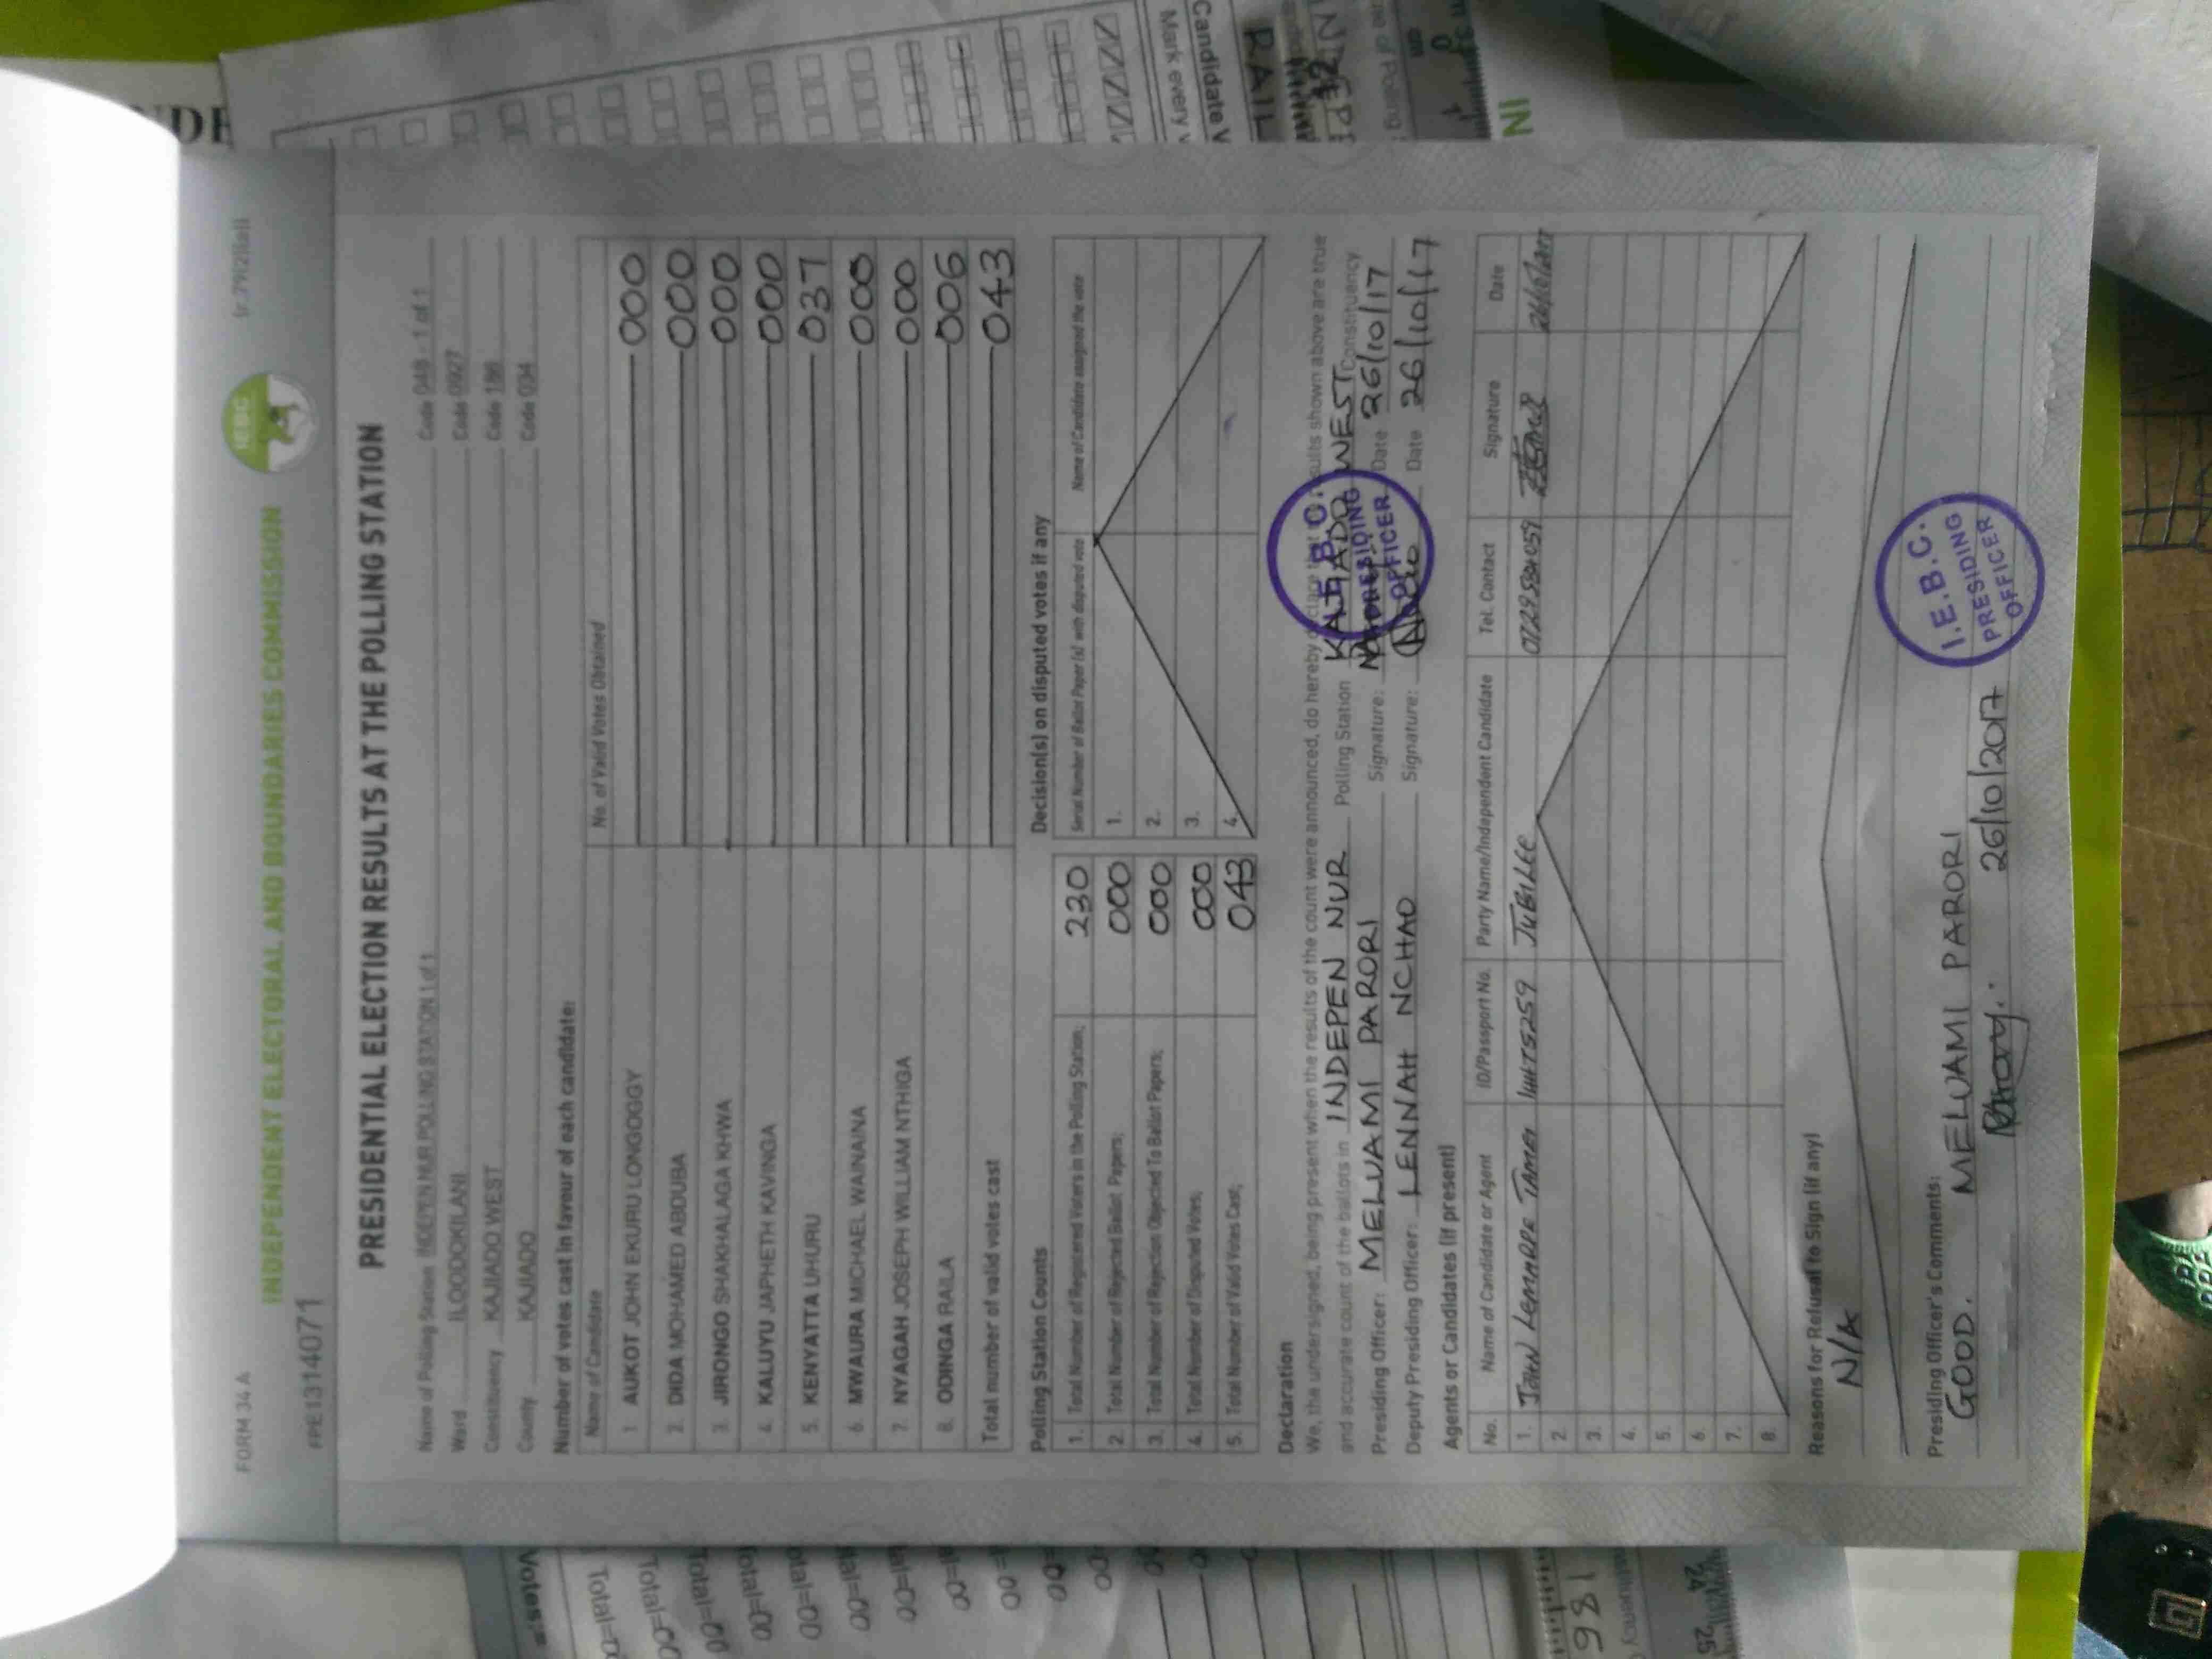 FORM 34 A
(r.79(2)(a))
INDEPENDENT ELECTORAL AND BOUNDARIES COMMISSION
IEBC
PRE1314071
PRESIDENTIAL ELECTION RESULTS AT THE POLLING STATION
Name of Polling Station INDEPEN NUR POLLING STATON 1 of 1 Code 048 - 1 of 1
Ward ILOODOKILANI Code 0927
Constituency KAJIADO WEST Code 186
County KAJIADO Code 034
Number of votes cast in favour of each candidate:
Name of Candidate No. of Valid Votes Obtained
1 AUKOT JOHN EKURU LONGOGGY 000
2. DIDA MOHAMED ABDUBA 000
3. JIRONGO SHAKHALAGA KHWA 000
4. KALUYU JAPHETH KAVINGA 000
5. KENYATTA UHURU 037
6 MWAURA MICHAEL WAINAINA 000
7. NYAGAH JOSEPH WILLIAM NTHIGA 000
8. ODINGA RAILA 006
Total number of valid votes cast 043
Polling Station Counts
1. Total Number of Registered Voters in the Polling Station; 230
2. Total Number of Rejected Ballot Papers; 000
3. Total Number of Rejection Objected To Ballot Papers; 000
4. Total Number of Disputed Votes; 000
5. Total Number of Valid Votes Cast; 043
Decision(s) on disputed votes if any
Serial Number of Ballot Paper (s) with disputed vote Name of Candidate assigned the vote
1.
2.
3.
4.
Declaration
We, the undersigned, being present when the results of the count were announced, do hereby declare that the results shown above are true
and accurate count of the ballots in INDEPEN NUR Polling Station KAJIADO WEST Constituency
Presiding Officer: MELUAMI PARORI Signature: Date 26/10/17
Deputy Presiding Officer: LENNAH NCHAO Signature: Date 26/10/17
I.E.B.C.
PRESIDING
OFFICER
Agents or Candidates (if present)
No. Name of Candidate or Agent ID/Passport No. Party Name/Independent Candidate Tel. Contact Signature Date
1. JOHN JUBILEE
2.
3.
4.
5.
6.
7.
8.
Reasons for Refusal to Sign (if any)
N/A
Presiding Officer's Comments:
GOOD. MELUAMI PARORI
26/10/2017
I.E.B.C.
PRESIDING
OFFICER
Candidate V
Mark every v
Votes:=
981
24
25